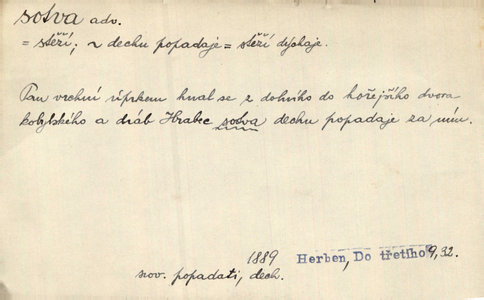 sotva adv.
= stěží; ~ dechu popadaje = stěží dýchaje.
Pan vrchní úprkem hnal se z dolního do hořejšího dvora
kobylského a dráb Hrabec sotva dechu popadaje za ním.
1889 Herben, Do třetího 9, 32.
srov. popadati, dech.